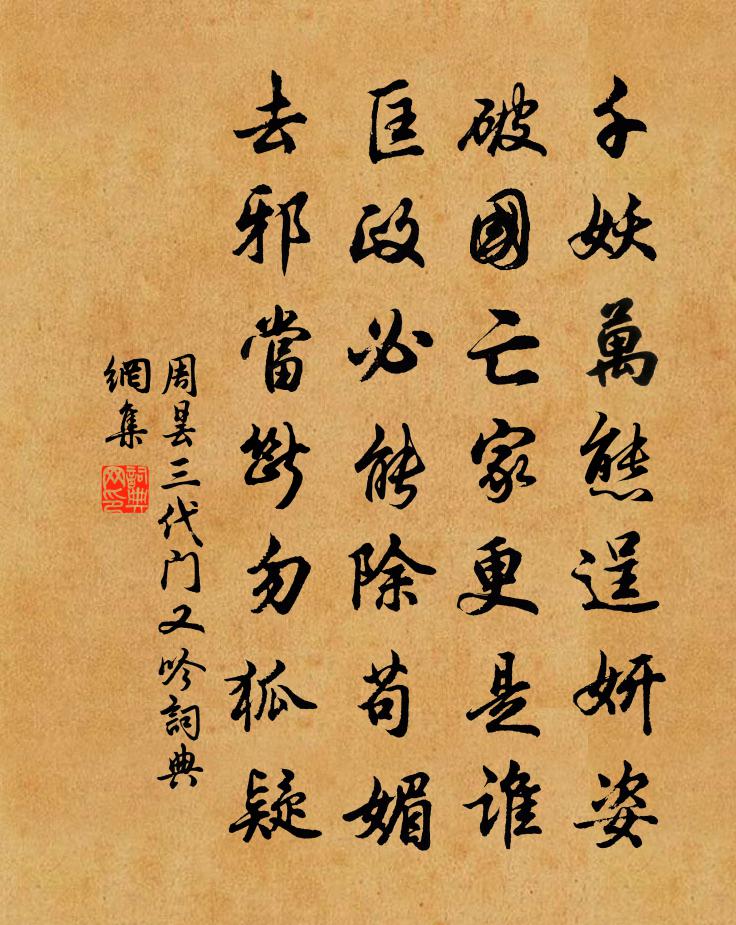 千妖萬態逞妍姿
破國亡家更是谁
匡政必能除苟媚
去邪當斷勿狐疑
周曇三代门又吟詞典
網集
詞典
网印